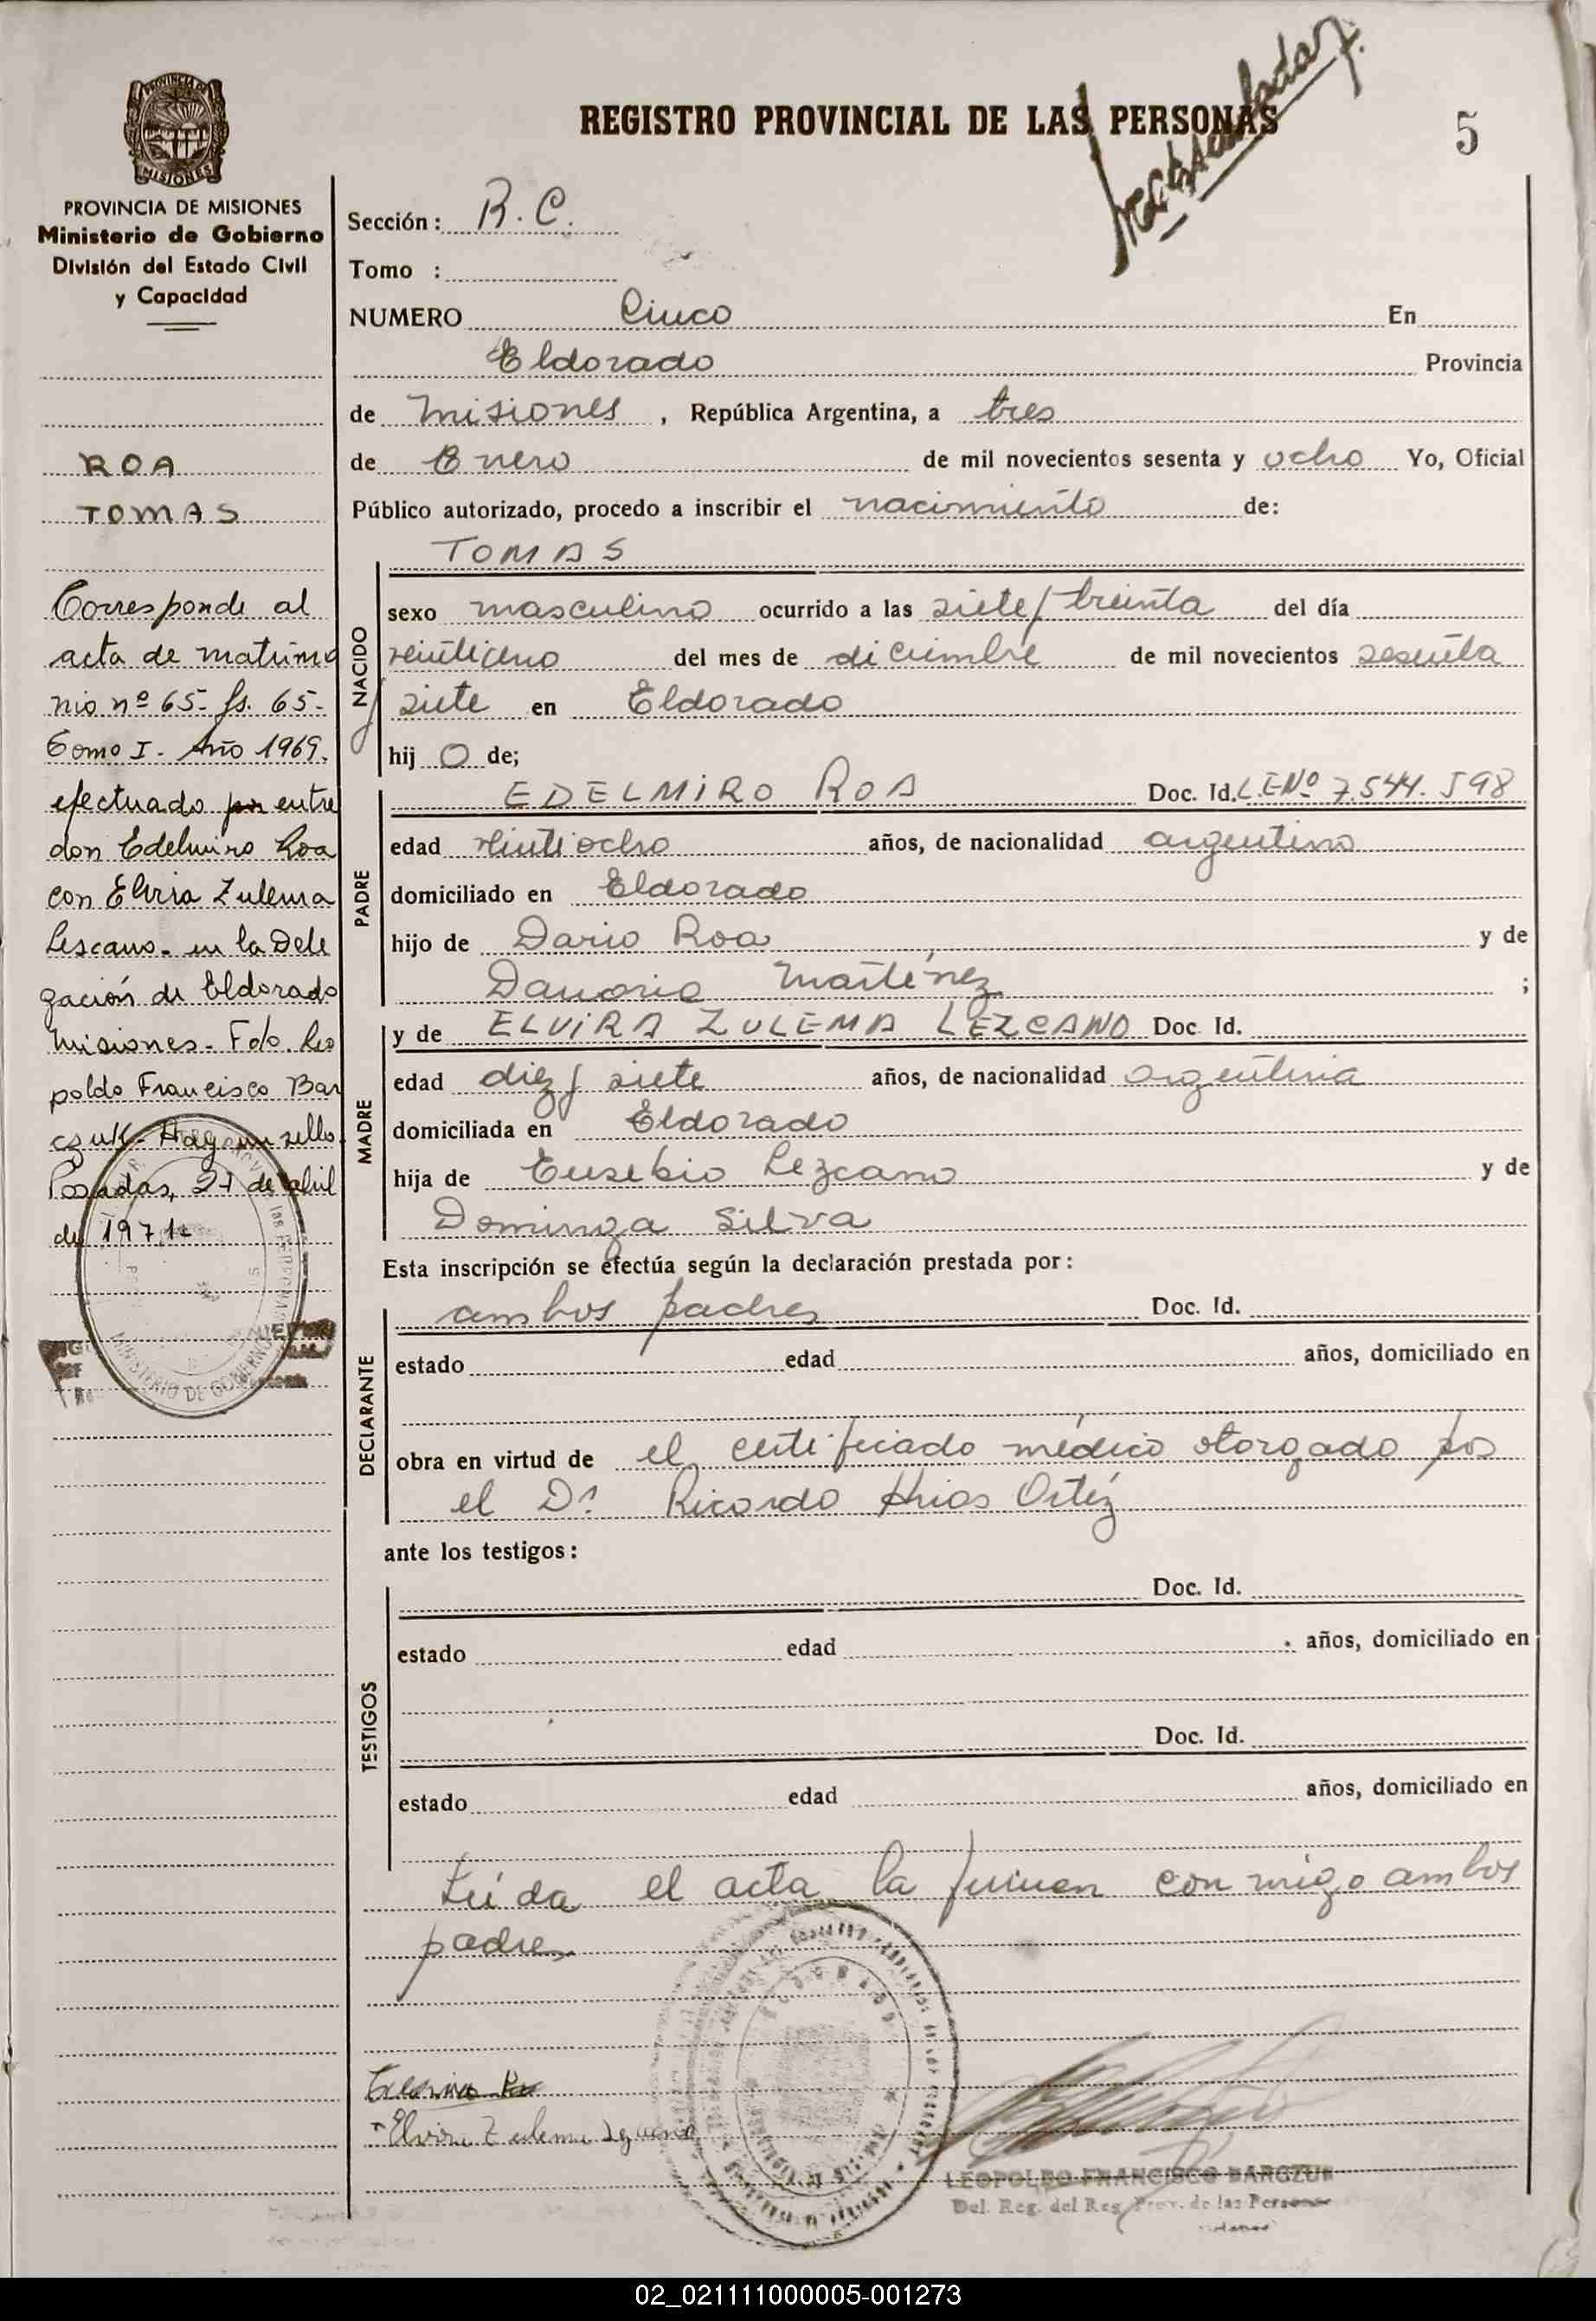 REGISTRO PROVINCIAL DE LAS PERSONAS
5
PROVINCIA DE
MISIONES
PROVINCIA DE MISIONES
Ministerio de Gobierno
División del Estado Civil
y Capacidad
ROA
TOMAS
Corresponde al
acta de matrimo
nio nº 65- fs. 65-
Tomo I- Año 1969.
efectuado por entre
don Edelmiro Roa
con Elvira Zulema
Lescano- en la Dele
gación de Eldorado
Misiones- Fdo. Leo
poldo Francisco Bar
czuk- Hay un sello.
Posadas, 27 de abril
de 1971-
MINISTERIO DE GOBIERNO
Sección: R. C.
Tomo :
NUMERO Cinco En
Eldorado Provincia
de Misiones, República Argentina, a tres
de Enero de mil novecientos sesenta y ocho Yo, Oficial
Público autorizado, procedo a inscribir el nacimiento de:
TOMAS
NACIDO
sexo masculino ocurrido a las siete y treinta del día
veintiuno del mes de diciembre de mil novecientos sesenta
y siete en Eldorado
hij o de;
PADRE
EDELMIRO ROA Doc. Id. L.E Nº 7.544.598
edad veintiocho años, de nacionalidad argentino
domiciliado en Eldorado
hijo de Dario Roa y de
Martínez ;
MADRE
y de ELVIRA ZULEMA LEZCANO Doc Id.
edad diez y siete años, de nacionalidad argentina
domiciliada en Eldorado
hija de Eusebio Lezcano y de
Dominga Silva
Esta inscripción se efectúa según la declaración prestada por:
DECLARANTE
ambos padres Doc. Id.
estado edad años, domiciliado en
obra en virtud de el certificado médico otorgado por
el Dr. Ricardo Ortíz
ante los testigos:
TESTIGOS
Doc. Id.
estado edad años, domiciliado en
Doc. Id.
estado edad años, domiciliado en
Leída el acta la firman conmigo ambos
padres
Elvira Zulema
LEOPOLDO FRANCISCO BARCZUK
Del. Reg. del Reg. Prov. de las Personas
02_021111000005-001273